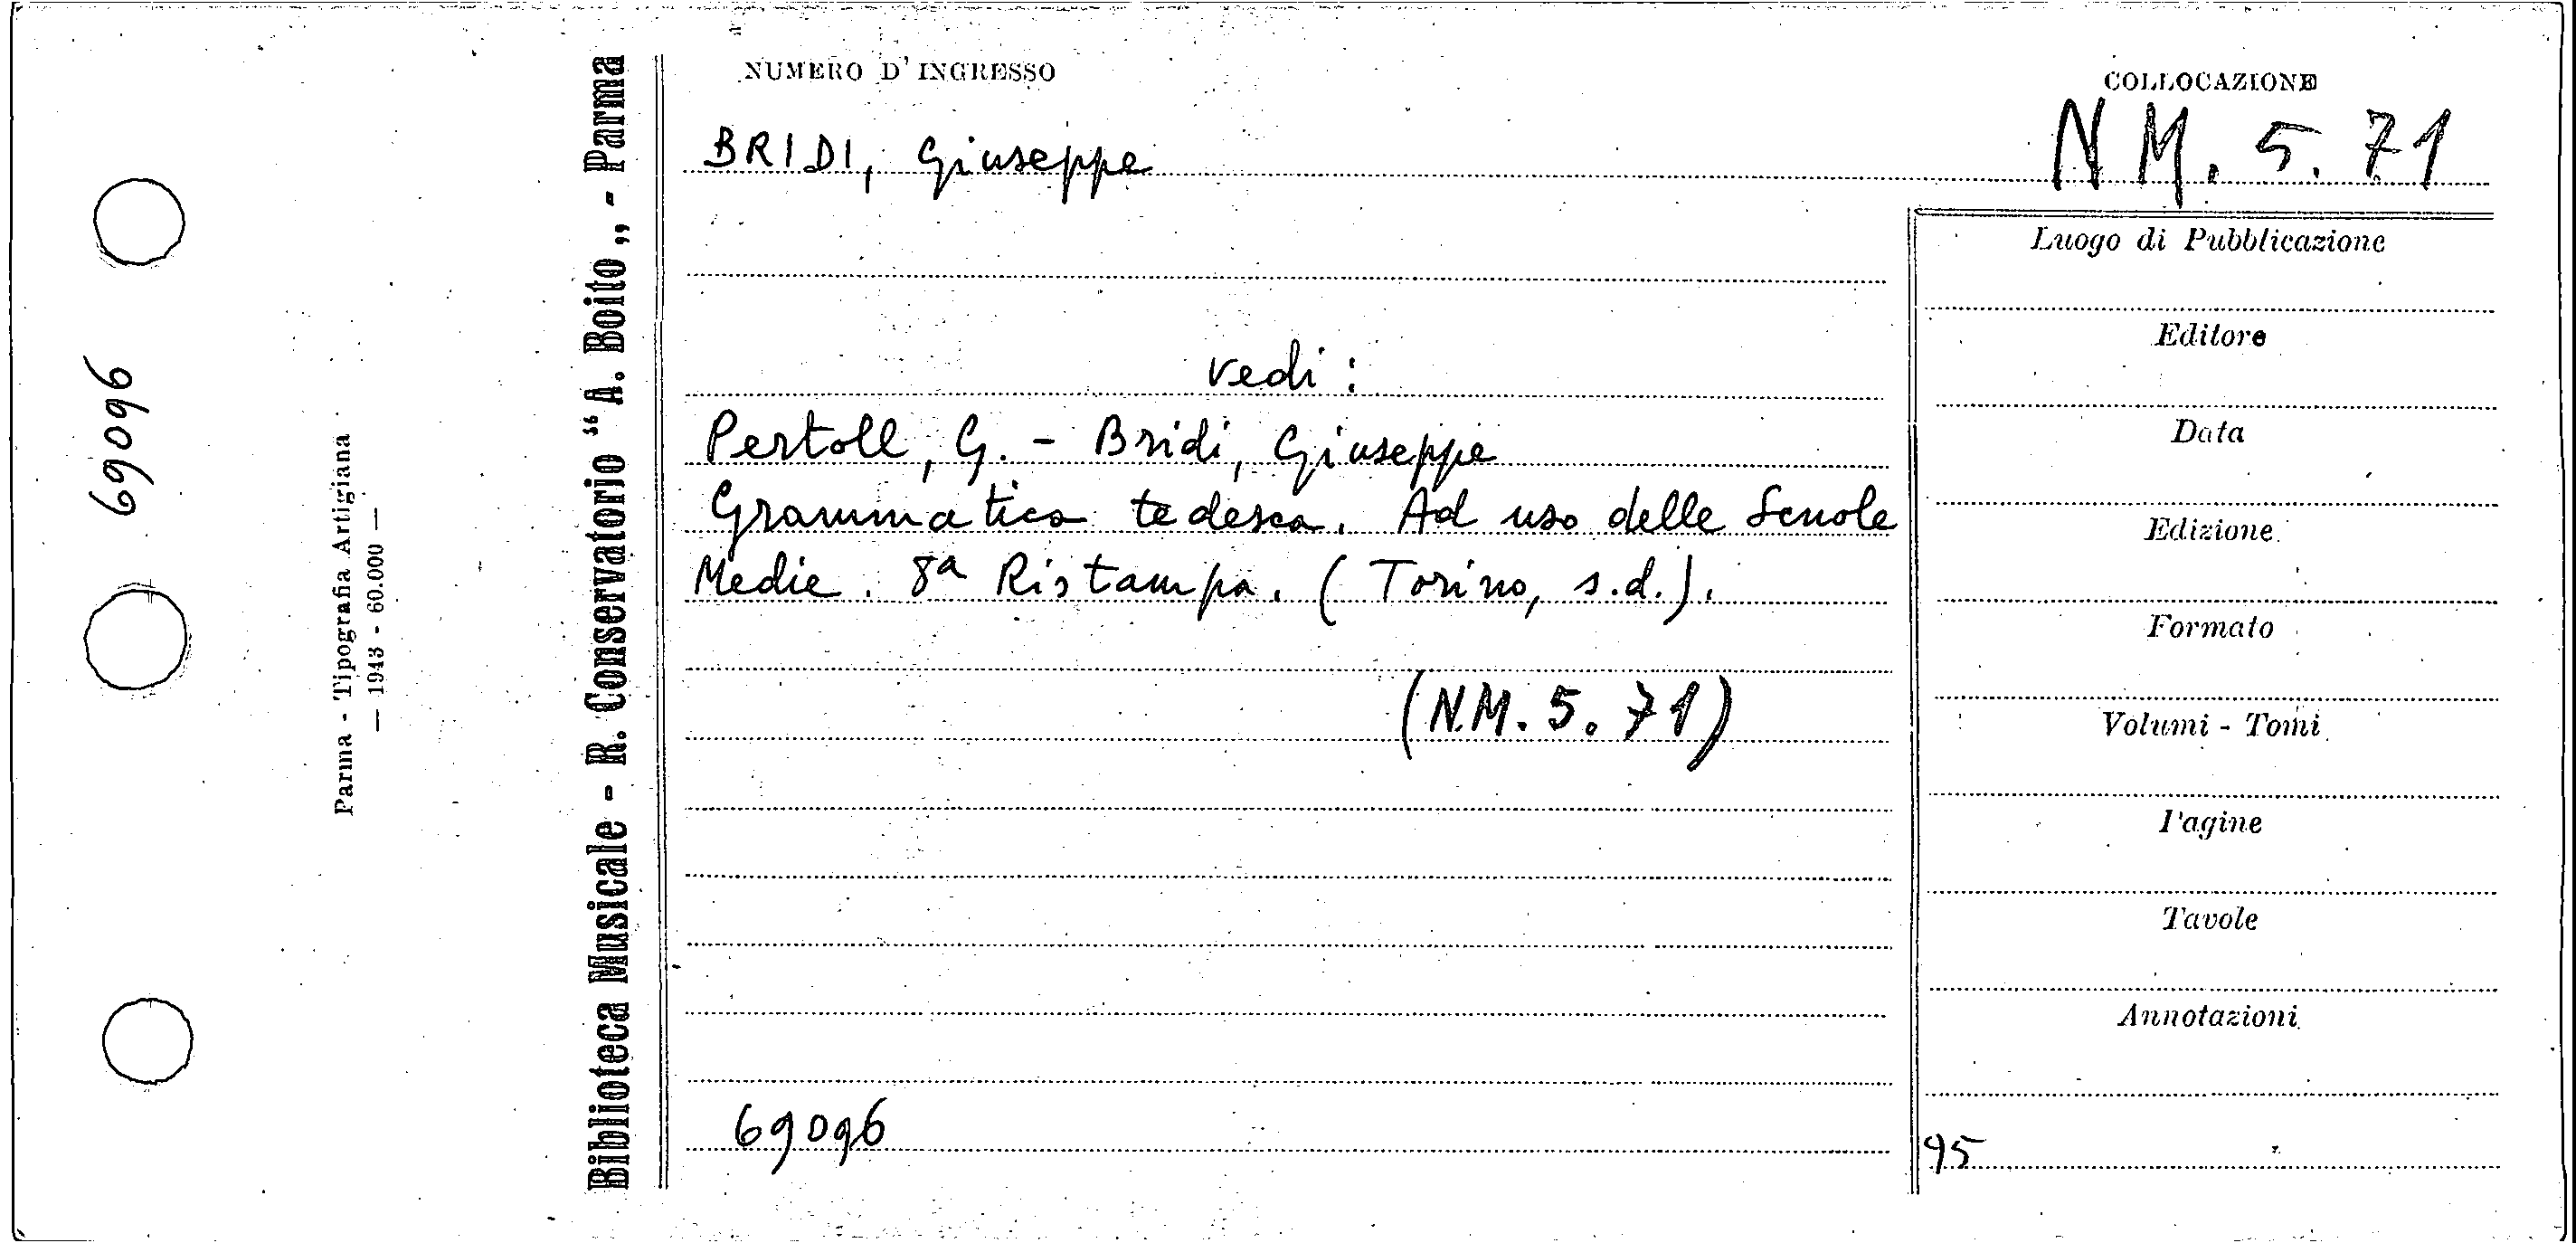 69096
Parma - Tipografia Artigiana
— 1943 - 60.000 —
Biblioteca Musicale - R. Conservatorio “A. Boito„ - Parma
NUMERO D'INGRESSO
COLLOCAZIONE
BRIDI, Giuseppe
NM. 5. 71
vedi:
Pertoll, G. - Bridi, Giuseppe
Grammatica tedesca. Ad uso delle Scuole
Medie. 8ª Ristampa. (Torino, s.d.).
(N.M. 5. 71)
69096
Luogo di Pubblicazione
Editore
Data
Edizione
Formato
Volumi - Tomi
Pagine
Tavole
Annotazioni
95